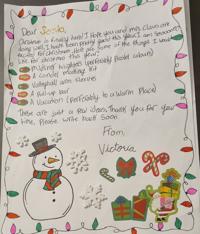 Dear Santa,
Christmas is finally here! I Hope you and Mrs. Claus are
doing well. I have been pretty good this year. I am
excited for Christmas. Here are some of the things I would
like for christmas this year:
(preferably pastel colors)
A candle making Kit
Volleyball arm sleeves
A Pull-up bar
A Vacation (preferably to a Warm Place)
These are just a few ideas. Thank you for your
time, Please write back soon.
From,
Victoria